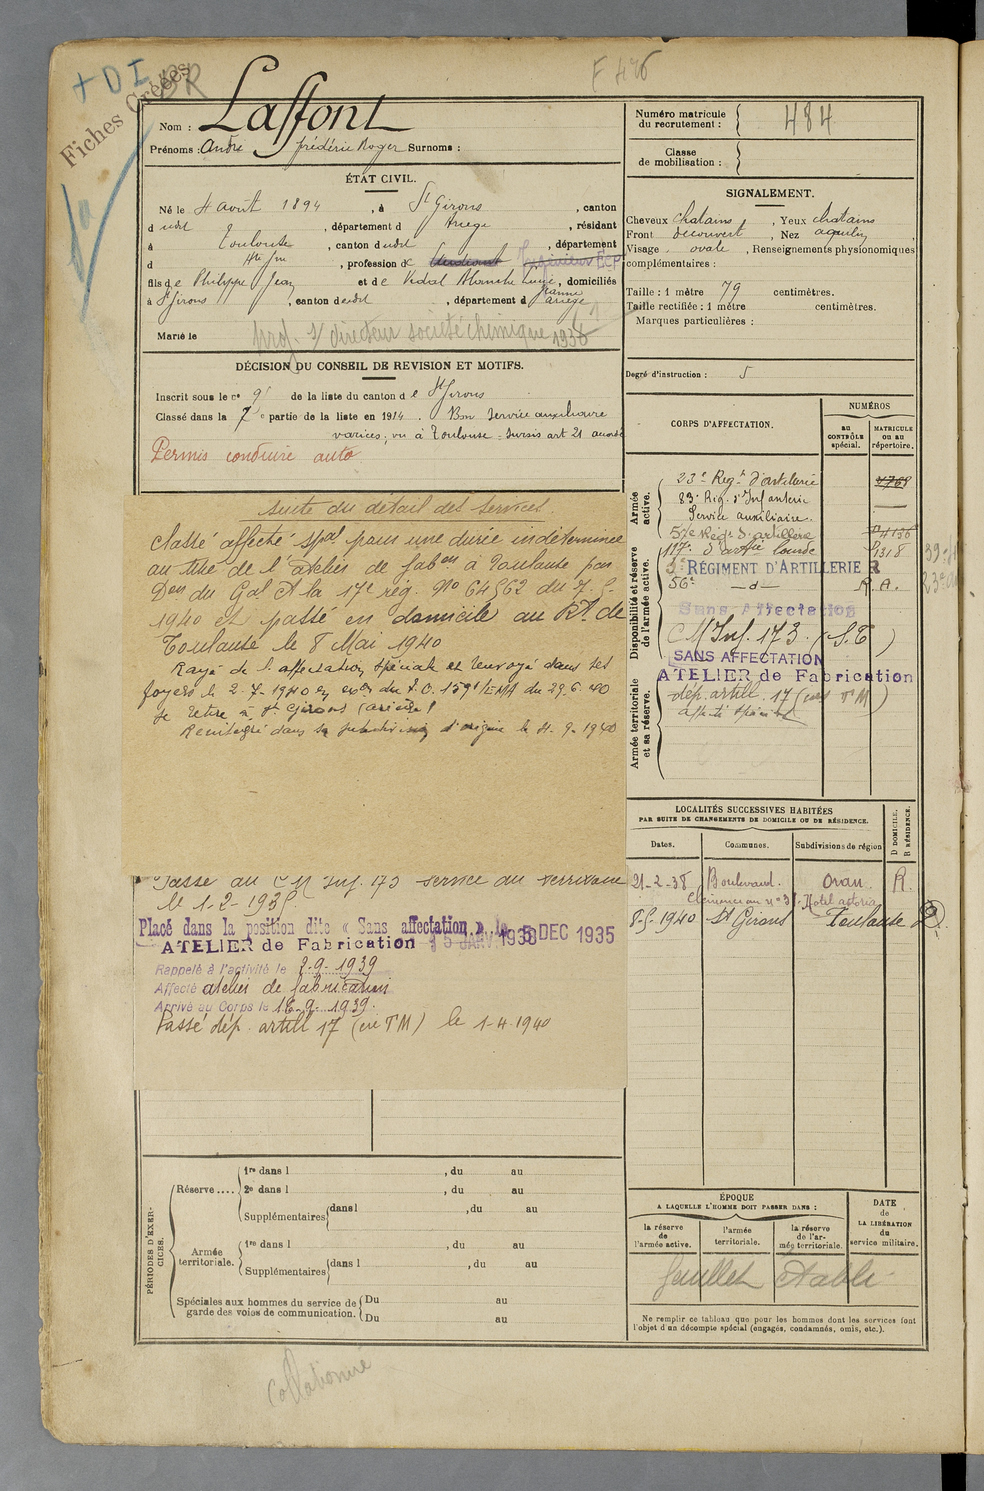 + DI
Fiches Créées
F 426
Nom : Laffont
Prénoms : André Frédéric Roger Surnoms :
Numéro matricule
du recrutement : 484
Classe
de mobilisation :
ÉTAT CIVIL.
Né le 4 août 1894, à St Girons, canton
d udit, département d Ariège, résidant
à Toulouse, canton d udit, département
d Hte Gne, profession de Ingénieur ECP
fils de Philippe Jean et de Vidal Blanche Lucie, Jeanne, domiciliés
à St Girons, canton dudit, département d Ariège
Marié le
prof. s/ directeur société chimique 1936
SIGNALEMENT.
Cheveux chatains, Yeux chatains
Front découvert, Nez aquilin
Visage ovale, Renseignements physionomiques
complémentaires :
Taille : 1 mètre 79 centimètres.
Taille rectifiée : 1 mètre centimètres.
Marques particulières :
Degré d'instruction : 5
DÉCISION DU CONSEIL DE REVISION ET MOTIFS.
Inscrit sous le no 9 de la liste du canton de St Girons
Classé dans la 7e partie de la liste en 1914. Bon service auxiliaire
varices, vu à Toulouse = Sursis art 21 accordé
Permis conduire auto
suite du détail des services.
Classé affecté spal pour une durée indéterminée
au titre de l'atelier de fabon à Toulouse par
Don du Gal Ct la 17e rég. No 64562 du 7-5-
1940 et passé en domicile au Rt de
Toulouse le 8 Mai 1940
Rayé de l'affectation spéciale et renvoyé dans ses
foyers le 2-7-1940 en exon du T.O. 1591/EMA du 29.6.40
se retire à St Girons (Ariège)
Réintégré dans sa subdivision d'origine le 21-9-1940
Passé au CM Inf. 173 service du territoire
le 1-2-193
Placé dans la position dite « Sans affectation » le 5 DEC 1935
ATELIER de Fabrication 15 JANV 1938
Rappelé à l'activité le 2-9-1939
Affecté atelier de fabrication
Arrivé au Corps le 16-9-1939.
Passé dép. artill 17 (ere TM) le 1-4-1940
CORPS D'AFFECTATION.
NUMÉROS
au
CONTRÔLE
spécial.
MATRICULE
ou au
répertoire.
Armée
active.
23e Régt d'artillerie
83e Rég. d'Infanterie
Service auxiliaire.
57e Régt d'artillerie
Disponibilité et réserve
de l'armée active.
117e d'artie lourde 9318
RÉGIMENT D'ARTILLERIE R
56e —d— R.A.
Sans Affectation
CM Inf. 173 (S.T)
SANS AFFECTATION
ATELIER de Fabrication
Armée territoriale
et sa réserve.
dép. artill. 17 (ere TM)
affecté spécial
LOCALITÉS SUCCESSIVES HABITÉES
PAR SUITE DE CHANGEMENTS DE DOMICILE OU DE RÉSIDENCE.
Dates. Communes. Subdivisions de région
D DOMICILE.
R RÉSIDENCE.
21-2-38 Boulevard. Oran R.
Clemenceau no 31 Hotel astoria
8-5-1940 St Girons Toulouse D.
PÉRIODES D'EXER-
CICES.
Réserve ....
1re dans l , du au
2e dans l , du au
Supplémentaires dans l , du au
Armée
territoriale.
1re dans l , du au
Supplémentaires dans l , du au
Spéciales aux hommes du service de
garde des voies de communication.
Du au
Du au
ÉPOQUE
A LAQUELLE L'HOMME DOIT PASSER DANS :
la réserve
de
l'armée active.
l'armée
territoriale.
la réserve
de l'ar-
mée territoriale.
DATE
de
LA LIBÉRATION
du
service militaire.
feuillet établi
Ne remplir ce tableau que pour les hommes dont les services font
l'objet d'un décompte spécial (engagés, condamnés, omis, etc.).
Collationné